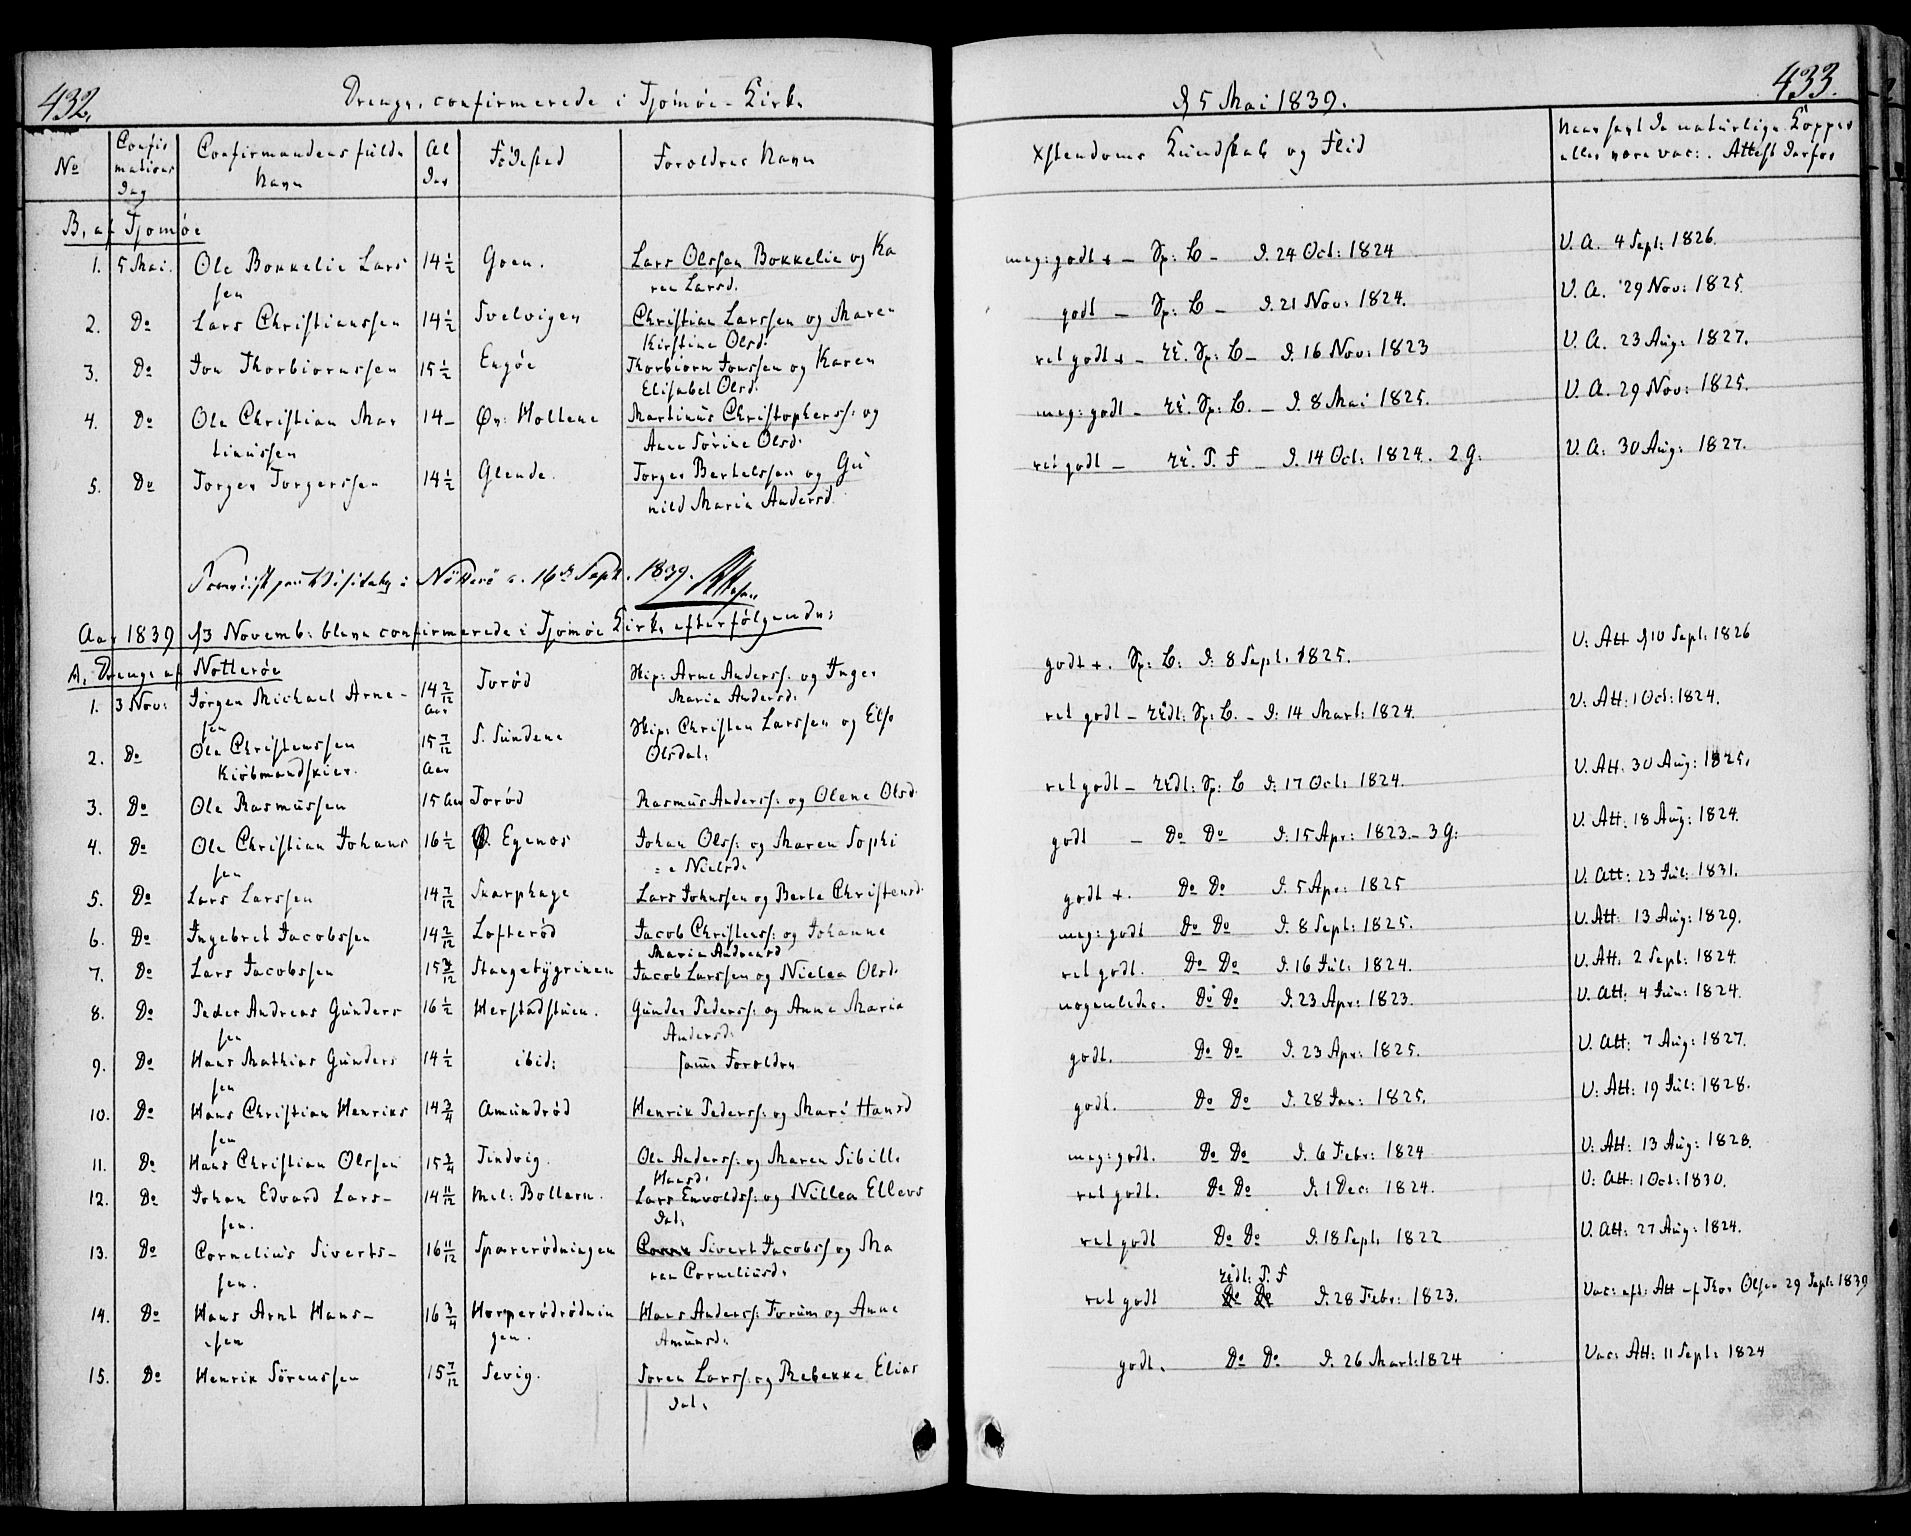 432.
Drenge, confirmerede i Tjomöe-Kirke
No
Confir
mations
Dag
Confirmandens fulde
Navn
Al
der
Födested
Foreldres Navn
B, af Tjomöe
1. 5 Mai. Ole Bokkelie Lars 14 1/2 Goen. Lars Olssen Bokkelie og Ka
sen ren Larsd.
2. Do Lars Christianssen 14 1/2 Svelvigen Christian Larssen og Maren
Kirstine Olsd.
3. Do Jon Thorbiornssen 15 1/2 Engöe Thorbiorn Jonssen og Karen
Elisabet Olsd.
4. Do Ole Christian Mar 14 – Øv: Holtene Martinus Christophers: og
tinussen Anne Sörine Olsd.
5. Do Torger Torgerssen 14 1/2 Glende. Torger Berthelssen og Gu
nild Maria Andersd.
i Nötterö d. 16de Sept. 1839.
Aar 1839 d 3 Novemb: bleve confirmerede i Tjomöe Kirke efterfölgende:
A, Drenge af Nötteröe
1. 3 Nov: Jörgen Michael Arne- 14 2/12 Toröd Skip: Arne Anders: og Inger
sen Aar Maria Andersd.
2. Do Ole Christenssen 15 7/12 S. Sundene Skip: Christen Larssen og Else
Kiöbmandskier. Aar Olsdat:
3. Do Ole Rasmussen 15 Aar Toröd Rasmus Anders: og Olene Olsd.
4. Do Ole Christian Johans 16 1/2 Ø. Egenes Johan Olss: og Maren Sophi
sen =e Nielsd.
5. Do Lars Larssen 14 7/12 Skarphage Lars Johnssen og Berte Christensd.
6. Do Ingebret Jacobssen 14 2/12 Lofteröd Jacob Christens: og Johanne
Maria Andreasd
7. Do Lars Jacobssen 15 3/12 Stangebygrinen Jacob Larssen og Nielea Olsd.
8. Do Peder Andreas Gunders 16 1/2 Herstadstuen. Gunder Peders: og Anne Maria
sen Andersd.
9. Do Hans Mathias Gunders 14 1/2 ibid: samme Foreldre
sen
10. Do Hans Christian Henriks 14 3/4 Amundröd Henrik Peders: og Mari Hansd
sen
11. Do Hans Christian Olssen 15 3/4 Tindvig. Ole Anders: og Maren Sibille
Hansd.
12. Do Johan Edvard Lars- 14 11/12 Mel: Bollern. Lars Envolds: og Nillea Ellevs
sen. dat:
13. Do Cornelius Siverts- 16 11/12 Sparerödningen Sivert Jacobs: og Ma
sen. ren Corneliusd.
14. Do Hans Arnt Hans- 16 3/4 Horperödrödnin Hans Anders: Torum og Anne
sen gen. Amunsd.
15. Do Henrik Sörenssen 15 7/12 Sevig. Soren Lars: og Rebekke Elias
dat.
433.
d 5 Mai 1839.
Xstendoms Kundskab og Flid
Naar havt de naturlige Kopper
eller være vac:. Attest derfor
meg: godt + – Sp: C – D. 24 Oct: 1824 V. A. 4 Sept: 1826.
godt – Sp: C – D. 21 Nov: 1824. V. A. 29 Nov: 1825.
ret godt + – Sp: C – D. 16 Nov: 1823 V. A. 23 Aug: 1827.
meg: godt – Sp: C. – D. 8 Mai 1825. V. A. 29 Nov: 1825.
ret godt – T. F – D. 14 Oct: 1824. 2 G. V. A: 30 Aug: 1827.
godt +. Sp: C: D. 8 Sept. 1825. V: Att d 10 Sept: 1826
ret godt – Sp: C. – D. 14 Mart: 1824. V: Att: 1 Oct: 1824.
ret godt – Sp: C D. 17 Oct: 1824. V. Att. 30 Aug: 1825.
godt – Do Do D. 15 Apr: 1823 – 3 G: V. Att. 18 Aug: 1824.
godt +. Do Do D. 5 Apr: 1825 V. Att: 23 Jul: 1831.
meg: godt Do Do D. 8 Sept: 1825. V. Att: 13 Aug: 1829.
ret godt. Do Do D. 16 Jul: 1824. V. Att: 2 Sept: 1824.
nogenledes. Do Do D. 23 Apr: 1823. V. Att: 4 Jun: 1824.
godt. Do Do D. 23 Apr: 1825. V. Att: 7 Aug: 1827.
godt. Do Do D. 28 Jan: 1825. V: Att: 19 Jul: 1828.
meg: godt. Do Do D. 6 Febr: 1824 V: Att: 13 Aug: 1828.
ret godt. Do Do D. 1 Dec: 1824. V: Att: 1 Oct: 1830.
ret godt Do Do D. 18 Sept: 1822 V. Att: 27 Aug: 1824.
T. F
ret godt Do Do D. 28 Febr: 1823. Vac: eft: Att af Thor Olsen 29 Sept: 1839
godt. Do Do D. 26 Mart: 1824 Vac: Att: 11 Sept: 1824